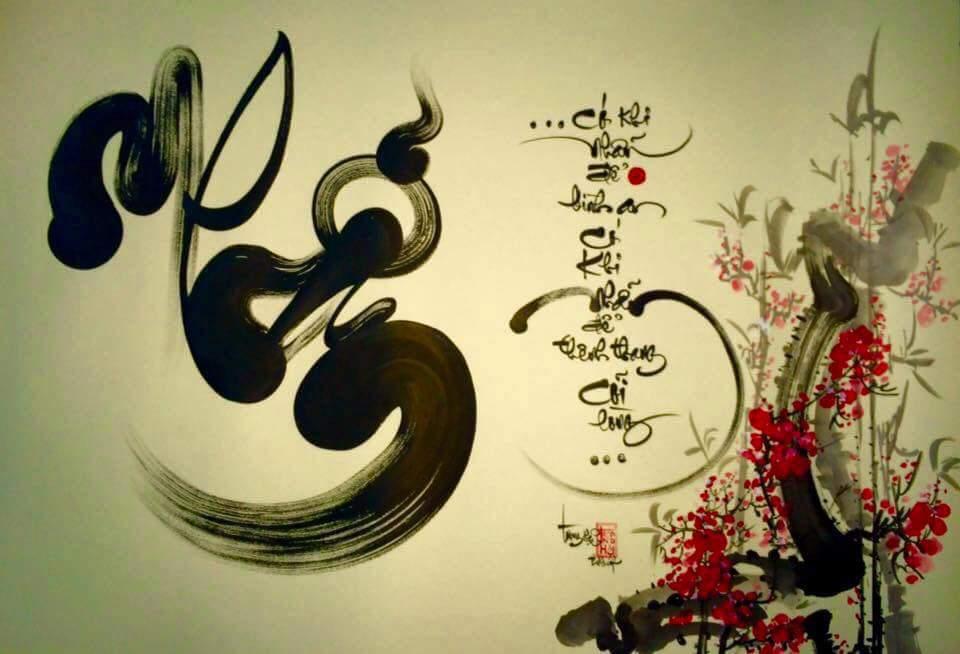 Nhẫn
... Có khi
nhẫn
để
bình an
Có
khi
nhẫn
để
thênh thang
Cõi
lòng
...